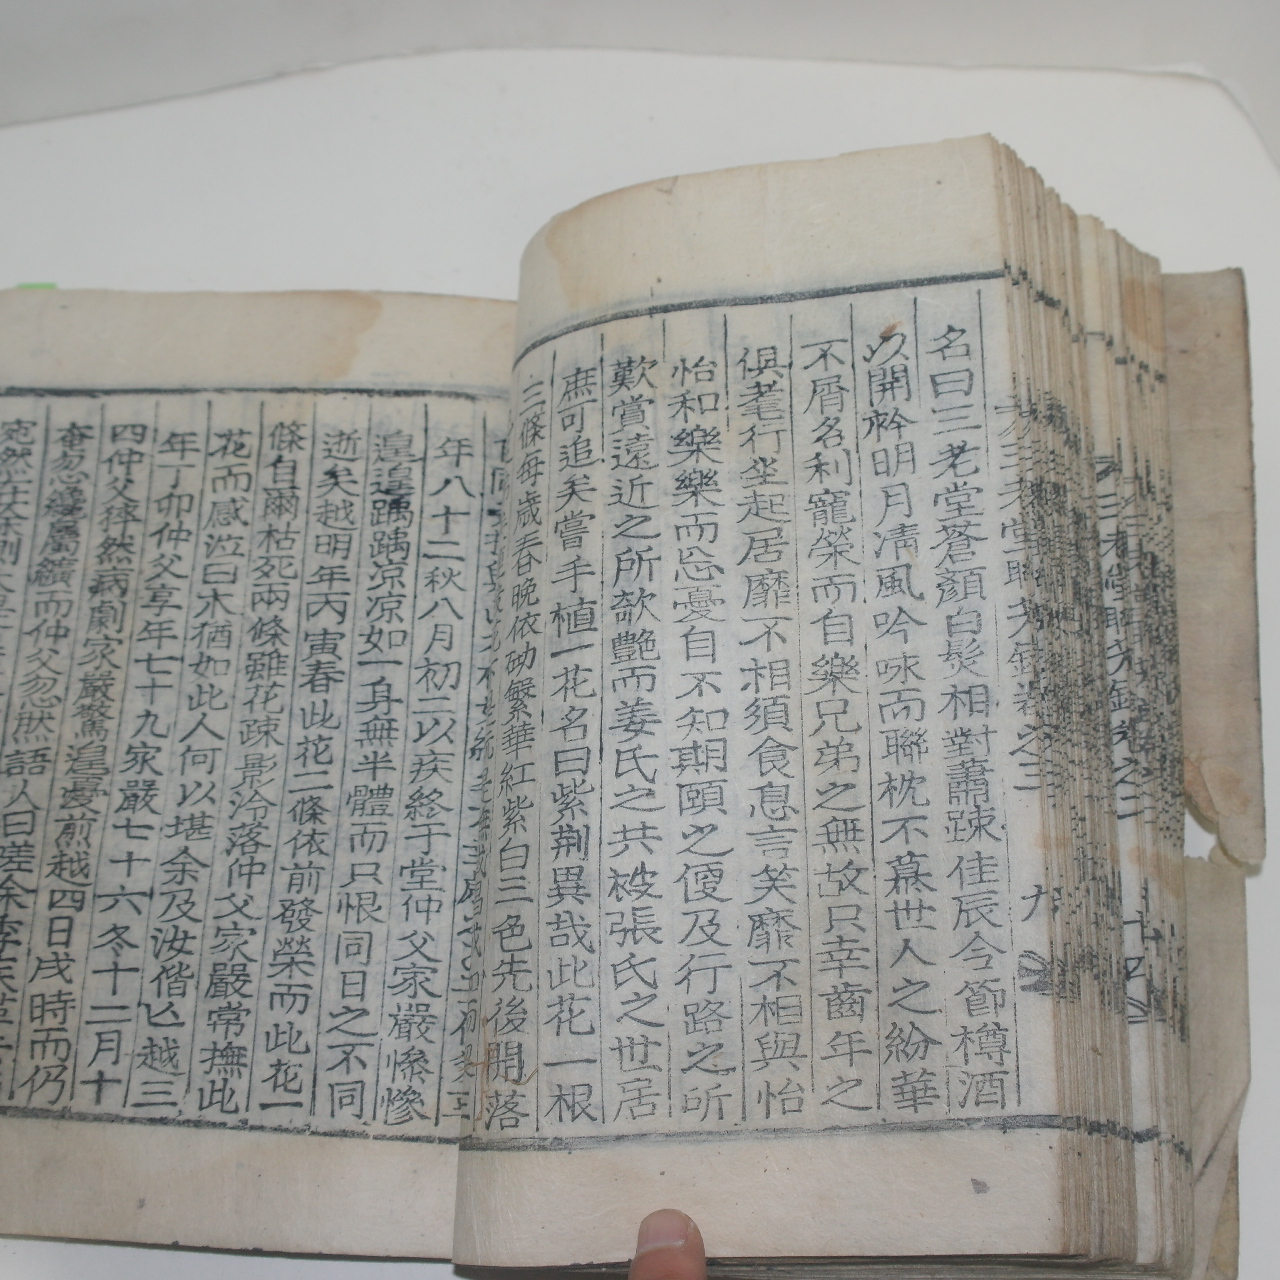 名曰三老堂蒼顔白髮相對蕭踈佳辰令節樽酒
以開衿明月淸風吟咏而聯枕不慕世人之紛華
不屑名利寵榮而自樂兄弟之無故只幸齒年之
俱耋行坐起居靡不相須食息言笑靡不相與怡
怡和樂樂而忘憂自不知期頤之便及行路之所
歎賞遠近之所欽艶而姜氏之共被張氏之世居
庶可追矣嘗手植一花名曰紫荆異哉此花一根
三條每歲春晚依砌繁華紅紫白三色先後開落
年八十二秋八月初二以疾終于堂仲父家嚴慘慘
遑遑踽踽凉凉如一身無半體而只恨同日之不同
逝矣越明年丙寅春此花二條依前發榮而此花一
條自爾枯死兩條雖花疎影冷落仲父家嚴常撫此
花而感泣曰木猶如此人何以堪余及汝偕亾越三
年丁卯仲父享年七十九家嚴七十六冬十二月十
四仲父猝然病劇家嚴驚遑憂煎越四日戌時而仍
奄忽屬纊而仲父忽然語人曰嗟余季
三老堂聯芳錄卷之三 九
三老堂聯芳錄卷之二 十四